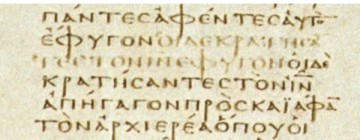 ΠΑΝΤΕΣΑΦΕΝΤΕΣΑΥΤ
ΕΦΥΓΟΝΟΙΔΕΚΡΑΤΗΣΑ
ΤΕΣΤΟΝΙΝΕΦΥΓΟΝΟΙΔΕ
ΚΡΑΤΗΣΑΝΤΕΣΤΟΝΙΝ
ΑΠΗΓΑΓΟΝΠΡΟΣΚΑΪΑΦΑ
ΤΟΝΑΡΧΙΕΡΕΑΟΠΟΥΟΙ